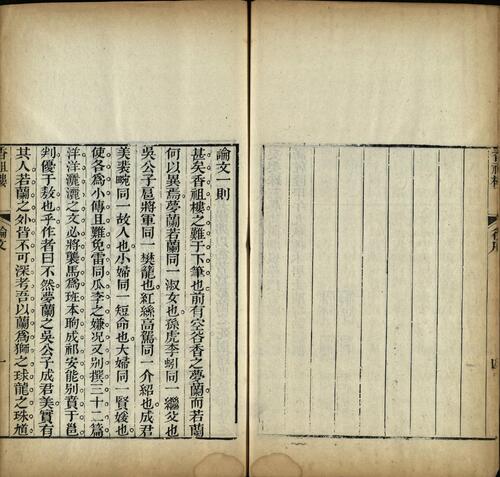 論文一則
甚矣香祖樓之難于下筆也前有空谷香之夢蘭而若蘭
何以異焉夢蘭若蘭同一淑女也孫虎李蚓同一繼父也
吳公子扈將軍同一樊籠也紅絲高駕同一介紹也成君
美裴畹同一故人也小婦同一短命也大婦同一賢媛也
使各爲小傳且難免雷同瓜李之嫌况又別撰三十二篇
洋洋灑灑之文必將襲馬爲班本朐成祁安能別賁于邕
判優于敖也乎作者曰不然夢蘭之吳公子成君美實有
其人若蘭之外皆不可深考吾以蘭爲獅之球龍之珠馗
香祖樓
論文
一
四